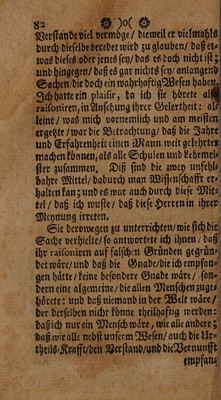 82
Verstande viel vermöge/ dieweil er vielmahls
durch dieselbe beredet wird zu glauben/ daß et-
was dieses oder jenes sey/ das es doch nicht ist;
und hingegen/ daß es gar nichts sey/ anlangend
Sachen/ die doch ein wahrhafftig Wesen haben.
Ich hatte ein plaisir, da ich sie hörete also
raisoniren, in Ansehung ihrer Gelertheit: al-
leine/ was mich vornemlich und am meisten
ergetzte/ war die Betrachtung/ daß die Jahre
und Erfahrenheit einen Mann weit gelehrter
machen können, als alle Schulen und Lehrmei-
ster zusammen. Diß sind die zwey unfehl-
bahre Mittel/ dadurch man Wissenschafft er-
halten kan; und es war auch durch diese Mit-
tel/ daß ich wuste/ daß diese Herren in ihrer
Meynung irreten.
Sie derowegen zu unterrichten/ wie sich die
Sache verhielte/ so antwortete ich ihnen/ daß
ihr raisoniren auf falschen Gründen gegrün-
det wäre/ und daß die Gnade/ die ich empfan-
gen hätte/ keine besondere Gnade wäre/ son-
dern eine algemeine/ die allen Menschen zuge-
hörete: und daß niemand in der Welt wäre/
der derselben nicht könne theilhafftig werden:
daß ich nur ein Mensch wäre/ wie alle andere;
daß wir alle nebst unserm Wesen/ auch die Ur-
theils-Krafft/ den Verstand/ und die Vernunfft
empfan-